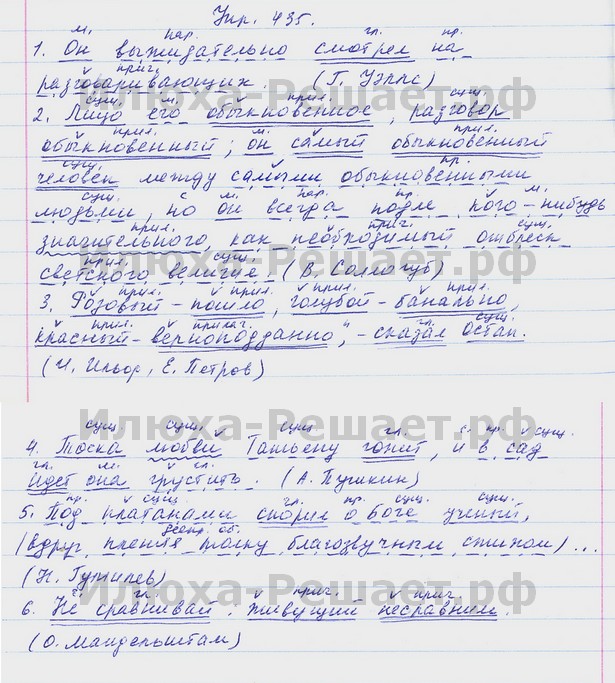 Упр. 435.
м. нар. гл. пр.
1. Он выжидательно смотрел на
прич.
разговаривающих. (Г. Уэллс)
сущ. м. прил. сущ.
2. Лицо его обыкновенное, разговор
прил. м. прил.
обыкновенный; он самый обыкновенный
сущ. пр.
человек между самыми обыкновенными
сущ. с. м. нар. пр. м.
людьми, но он всегда подле кого-нибудь
прил. прич. сущ.
значительного, как необходимый отблеск
прил. сущ.
светского величия. (В. Соллогуб)
прил. прил. прил. прил.
3. Розовый – пошло, голубой – банально,
прил. прилаг. гл. сущ.
красный – верноподданно", – сказал Остап.
(И. Ильф, Е. Петров)
Илюха-Решает.рф
сущ. сущ. сущ. гл. с. пр. сущ.
4. Тоска любви Татьяну гонит, и в сад
гл. м. гл.
идет она грустить. (А. Пушкин)
пр. сущ. гл. пр. сущ. сущ.
5. Под платанами спорил о Боге ученый,
деепр. об.
(вдруг пленяя толпу благозвучным стихом)...
(Н. Гумилев)
Илюха-Решает.рф
гл. прич. прич.
6. Не сравнивай: живущий несравним.
(О. Мандельштам)